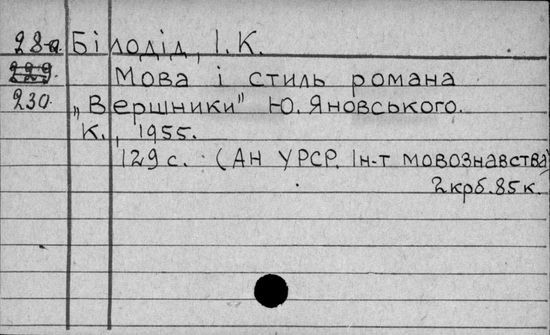 28-а. Білодід, І. К.
229. Мова і стиль романа
230. „Вершники" Ю. Яновського.
К., 1955.
129 с. (АН УРСР. Ін-т мовознавства)
2 крб. 85 к.